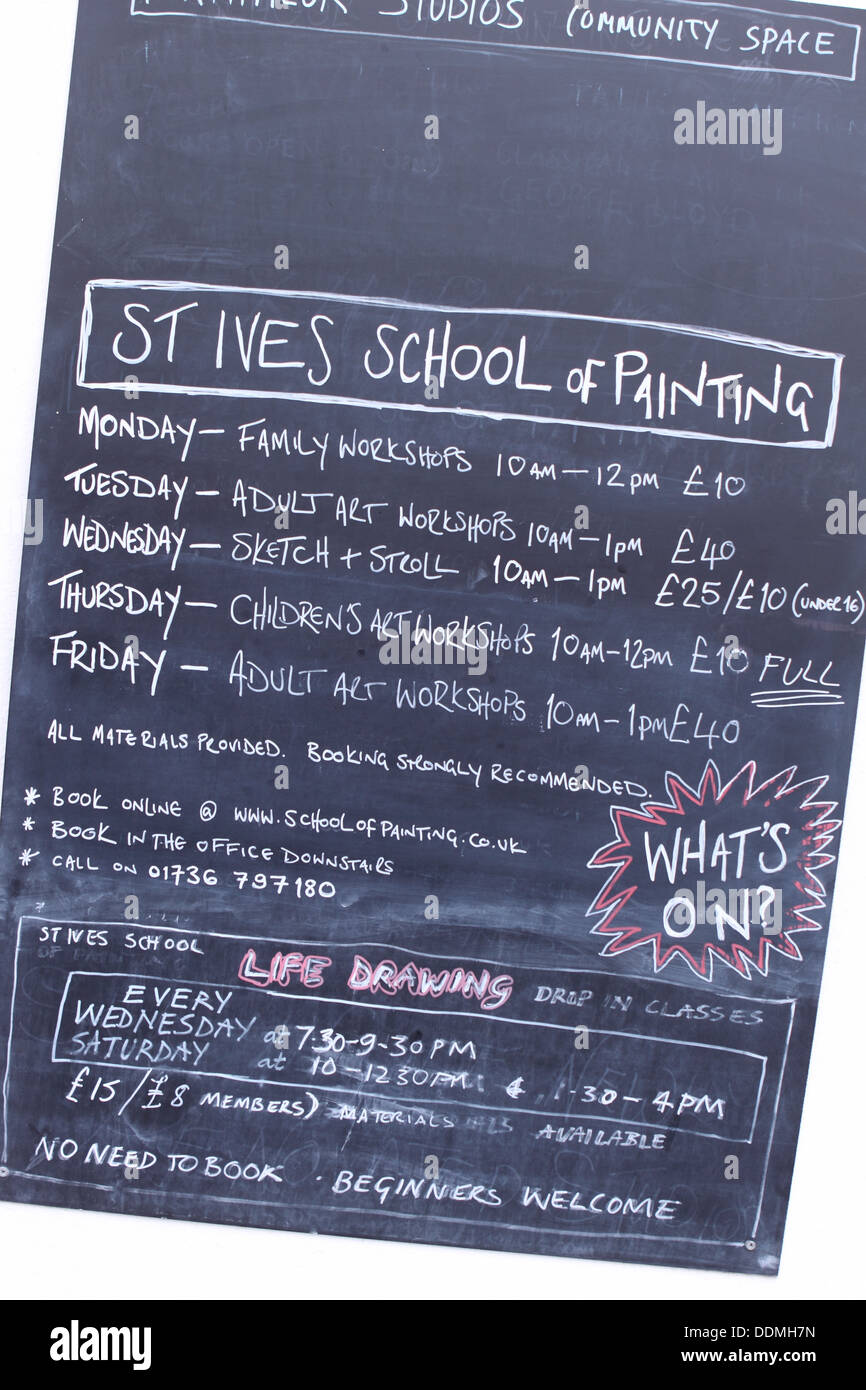 STUDIOS COMMUNITY SPACE
ST IVES SCHOOL OF PAINTING
MONDAY — FAMILY WORKSHOPS 10AM — 12PM £10
TUESDAY — ADULT ART WORKSHOPS 10AM — 1PM £40
WEDNESDAY — SKETCH + STROLL 10AM — 1PM £25/£10 (UNDER 16)
THURSDAY — CHILDREN'S ART WORKSHOPS 10AM-12PM £10 FULL
FRIDAY — ADULT ART WORKSHOPS 10AM-1PM £40
ALL MATERIALS PROVIDED. BOOKING STRONGLY RECOMMENDED.
* BOOK ONLINE @ WWW.SCHOOLOFPAINTING.CO.UK
* BOOK IN THE OFFICE DOWNSTAIRS
* CALL ON 01736 797180
WHAT'S
ON?
ST IVES SCHOOL
OF PAINTING
LIFE DRAWING DROP IN CLASSES
EVERY
WEDNESDAY at 7.30-9-30PM
SATURDAY at 10-1230PM & 1-30-4PM
£15/£8 MEMBERS) MATERIALS AVAILABLE
NO NEED TO BOOK · BEGINNERS WELCOME
alamy
alamy
Image ID: DDMH7N
www.alamy.com